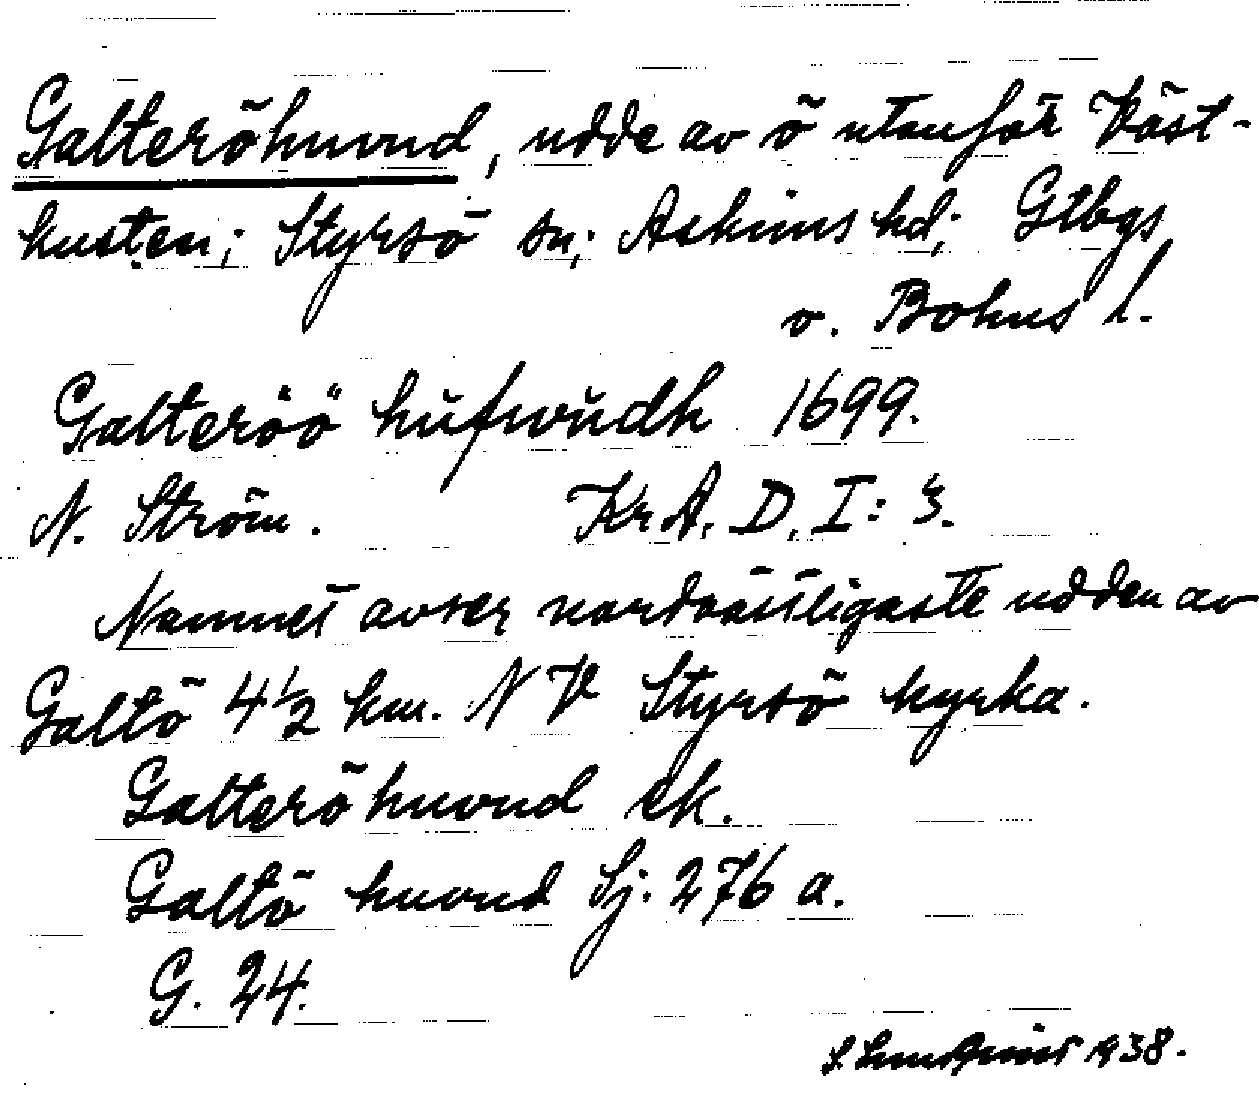 Galteröhuvud, udde av ö utanför Väst-
kusten; Styrsö sn; Askims hd; Gtbgs
o. Bohus l.
Galteröö hŭfwŭdh 1699.
N. Ström. Kr. A. D. I: 3.
Namnet avser nordvästligaste udden av
Galtö 4 1/2 km. NV Styrsö kyrka.
Galteröhuvud ek.
Galtö huvud Sj. 276 a.
G. 24.
S. Lundqvist 1938.